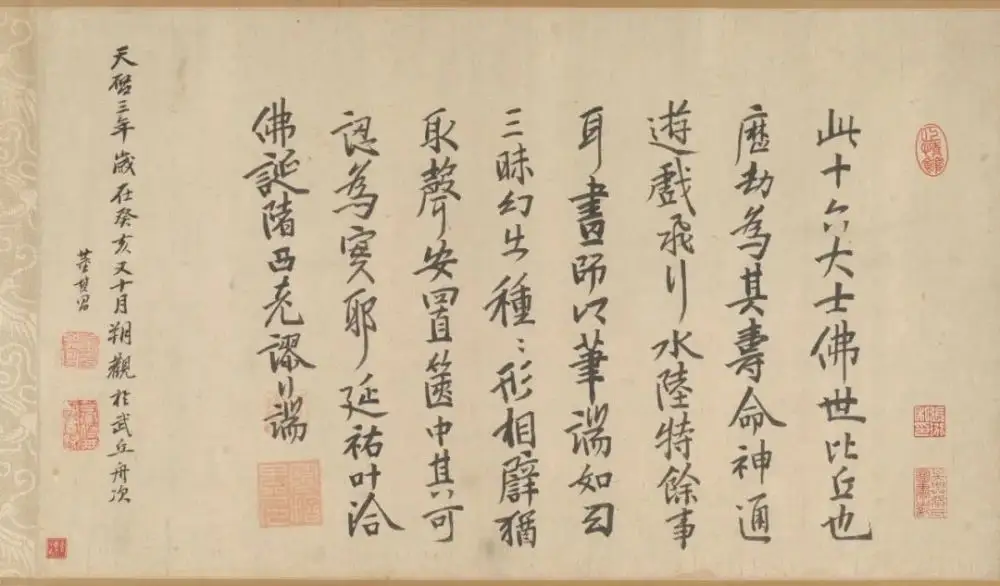 此十六大士佛世比丘也
歷劫為其壽命神通
遊戲飛行水陸特餘事
耳畫師以筆端如幻
三昧幻出種〻形相譬猶
取聲安置篋中其可
認為實耶延祐叶洽
佛誕陼西老謬行端
天啓三年歲在癸亥又十月朔觀於武丘舟次
董其昌